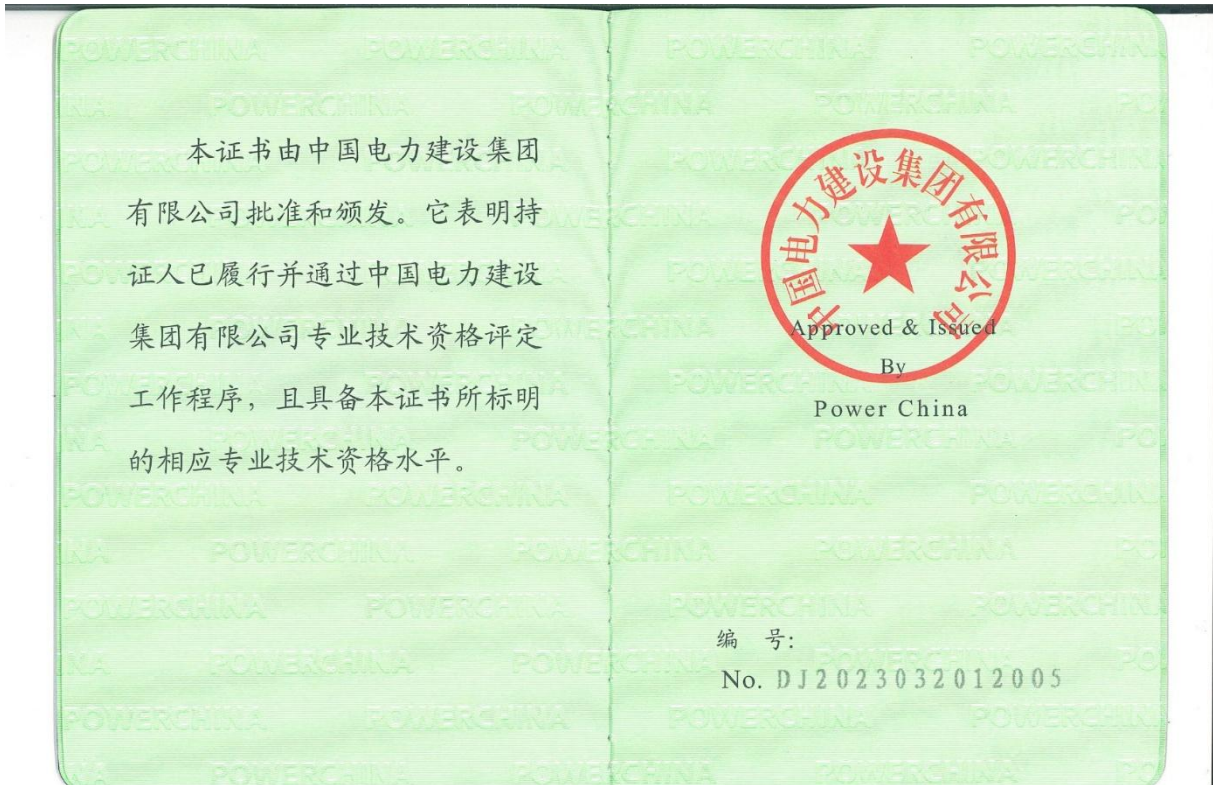 本证书由中国电力建设集团
有限公司批准和颁发。它表明持
证人已履行并通过中国电力建设
集团有限公司专业技术资格评定
工作程序，且具备本证书所标明
的相应专业技术资格水平。
中国电力建设集团有限公司
Approved & Issued
By
Power China
编 号:
No. DJ2023032012005
POWERCHINA